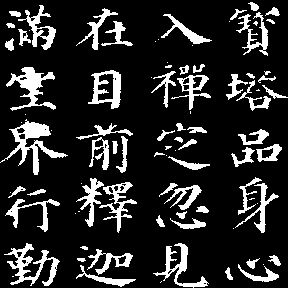 寶塔品身心
入禪定忽見
在目前釋迦
滿空界行勤